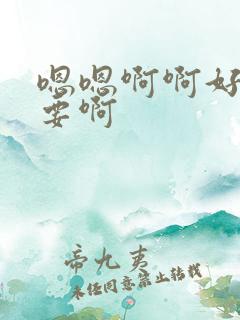 嗯嗯啊啊好
要啊
帝九夷
未经同意禁止转载